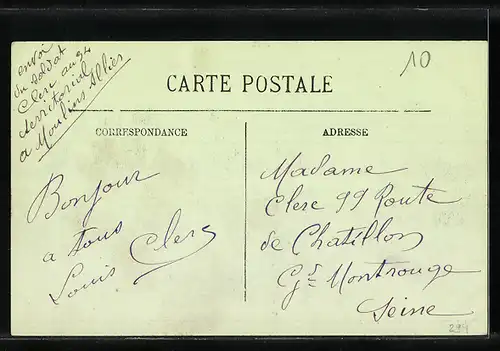 envoi
du soldat
Clerc au 94
territorial
a Moulins Allier
10
CARTE POSTALE
CORRESPONDANCE
ADRESSE
Bonjour
a tous
Louis Clerc
Madame
Clerc 99 Route
de Chatillon
Gd Montrouge
Seine
294